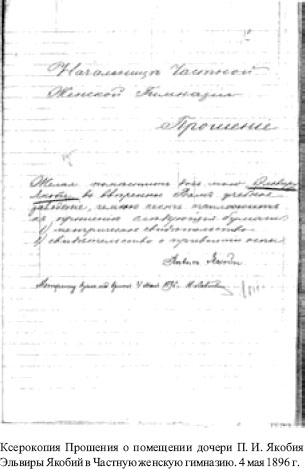 Начальницѣ Частной
Женской Гимназіи
Прошеніе
Желая помѣстить дочь мою Эльвиру
Якоби во ввѣренное Вамъ учебное
заведеніе, честь имѣю приложить
къ прошенію слѣдующія бумаги:
1) метрическое свидѣтельство
2) свидѣтельство о привитіи оспы.
Якоби
4 мая 1896 г.
Ксерокопия Прошения о помещении дочери П. И. Якобия
Эльвиры Якобий в Частную женскую гимназию. 4 мая 1896 г.